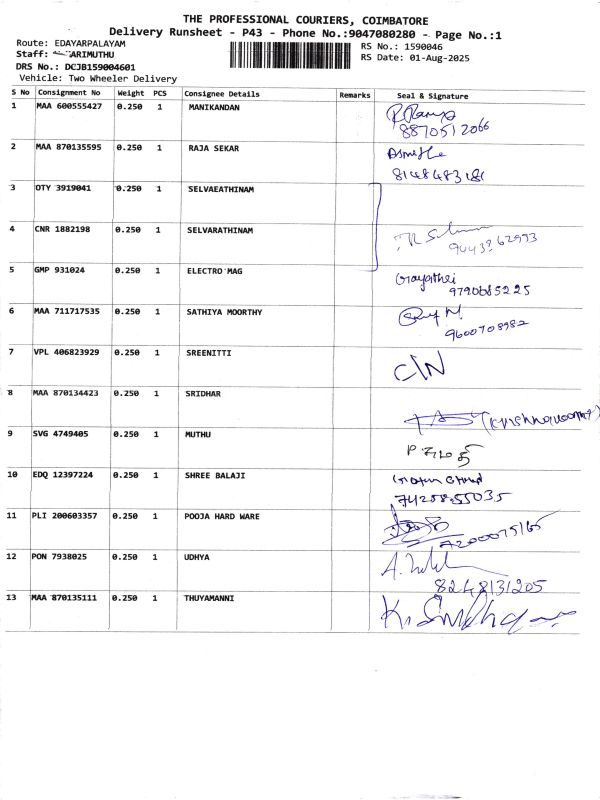 THE PROFESSIONAL COURIERS, COIMBATORE
Delivery Runsheet - P43 - Phone No.:9047080280 - Page No.:1
Route: EDAYARPALAYAM
RS No.: 1590046
Staff: ARIMUTHU
RS Date: 01-Aug-2025
DRS No.: DCJB159004601
Vehicle: Two Wheeler Delivery
S No Consignment No Weight PCS Consignee Details Remarks Seal & Signature
1 MAA 600555427 0.250 1 MANIKANDAN
8870512066
2 MAA 870135595 0.250 1 RAJA SEKAR
8148483181
3 OTY 3919041 0.250 1 SELVAEATHINAM
4 CNR 1882198 0.250 1 SELVARATHINAM
9043862993
5 GMP 931024 0.250 1 ELECTRO MAG Gayathri
9790685225
6 MAA 711717535 0.250 1 SATHIYA MOORTHY
9600708982
7 VPL 406823929 0.250 1 SREENITTI C/N
8 MAA 870134423 0.250 1 SRIDHAR
9 SVG 4749405 0.250 1 MUTHU
10 EDQ 12397224 0.250 1 SHREE BALAJI
7425855035
11 PLI 200603357 0.250 1 POOJA HARD WARE
7200075165
12 PON 7938025 0.250 1 UDHYA
8248131205
13 MAA 870135111 0.250 1 THUYAMANNI